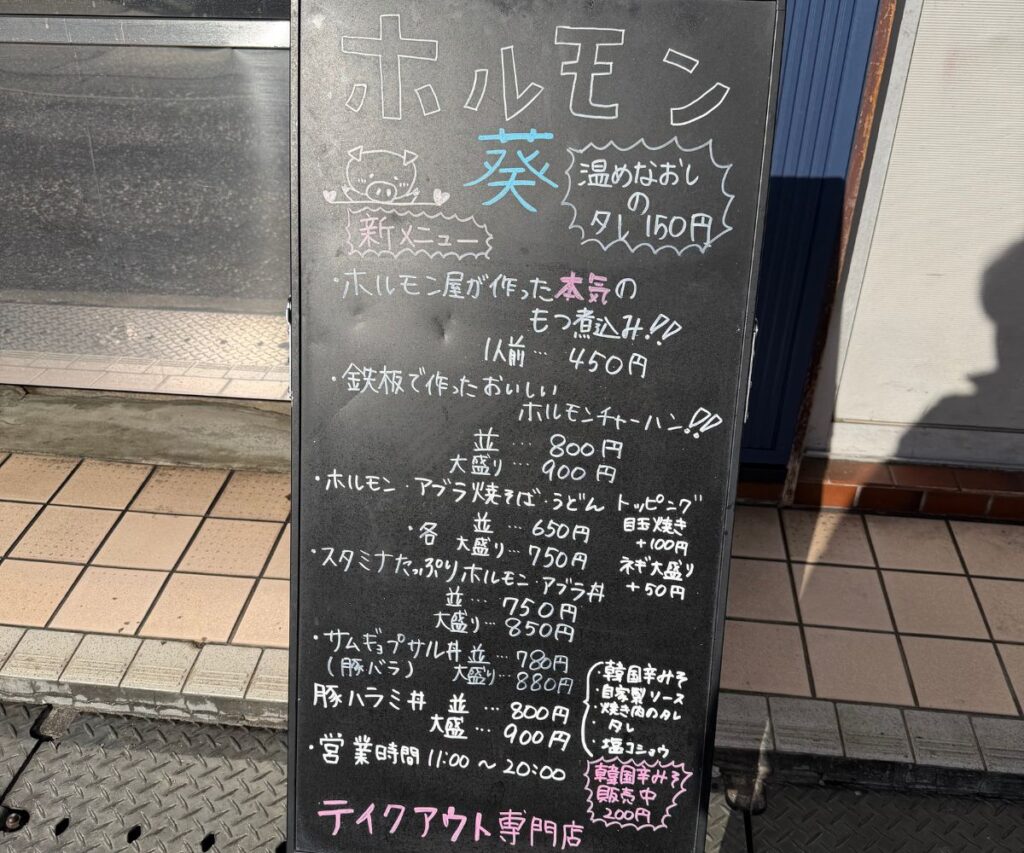 ホルモン
葵
温めなおし
の
タレ 150円
新メニュー
・ホルモン屋が作った本気の
もつ煮込み!!
1人前… 450円
・鉄板で作ったおいしい
ホルモンチャーハン!!
並 … 800円
大盛り… 900円
・ホルモン・アブラ焼そば・うどん トッピング
・各 並 … 650円
大盛り… 750円
目玉焼き
+100円
ネギ大盛り
+50円
・スタミナたっぷりホルモン・アブラ丼
並 … 750円
大盛り… 850円
・サムギョプサル丼 並 … 780円
(豚バラ) 大盛り… 880円
豚ハラミ丼 並 … 800円
大盛 … 900円
・韓国辛みそ
・自家製ソース
・焼き肉のタレ
・タレ
・塩コショウ
・営業時間 11:00 〜 20:00
韓国辛みそ
販売中
200円
テイクアウト専門店